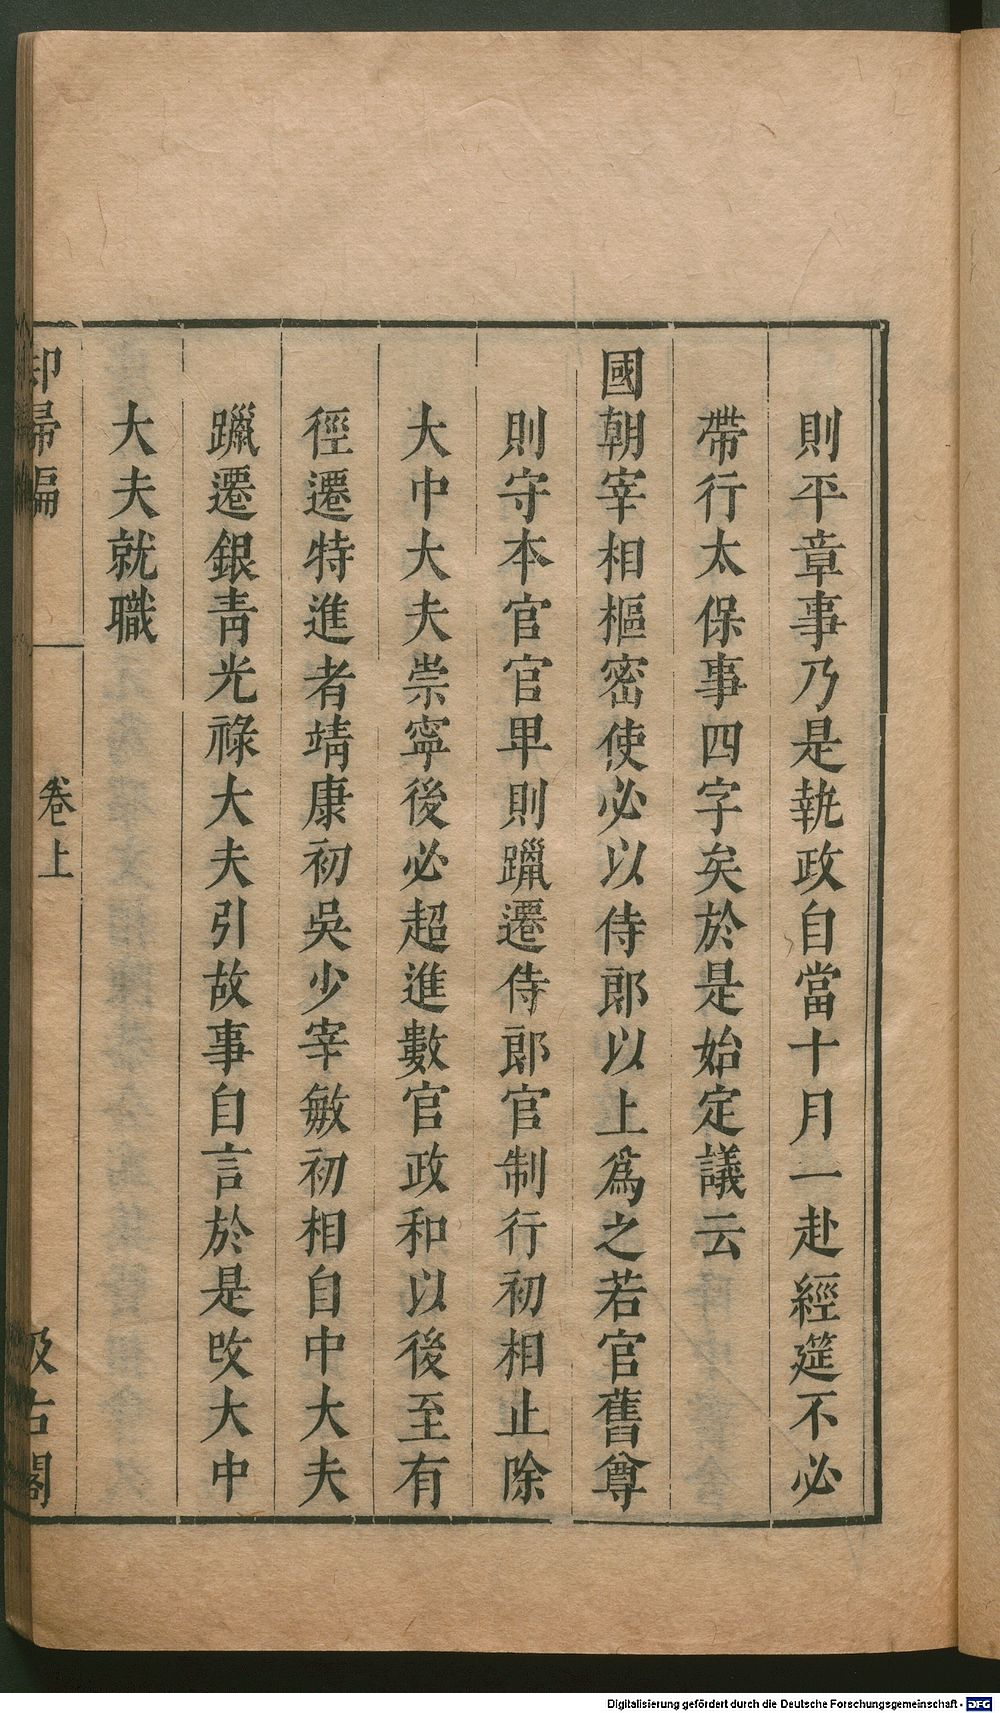 則平章事乃是執政自當十月一赴經筵不必
帶行太保事四字矣於是始定議云
國朝宰相樞密使必以侍郎以上爲之若官舊尊
則守本官官卑則躐遷侍郎官制行初相止除
大中大夫崇寧後必超進數官政和以後至有
徑遷特進者靖康初吳少宰敏初相自中大夫
躐遷銀青光祿大夫引故事自言於是改大中
大夫就職
却帚編
卷上
汲古閣
Digitalisierung gefördert durch die Deutsche Forschungsgemeinschaft - DFG